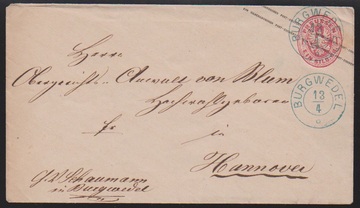 BURGWEDEL
BURGWEDEL
13/4
Herrn
Obergerichts-Anwalt von Blum
Hochwohlgeboren
in
Hannover
Schaumann
in Burgwedel